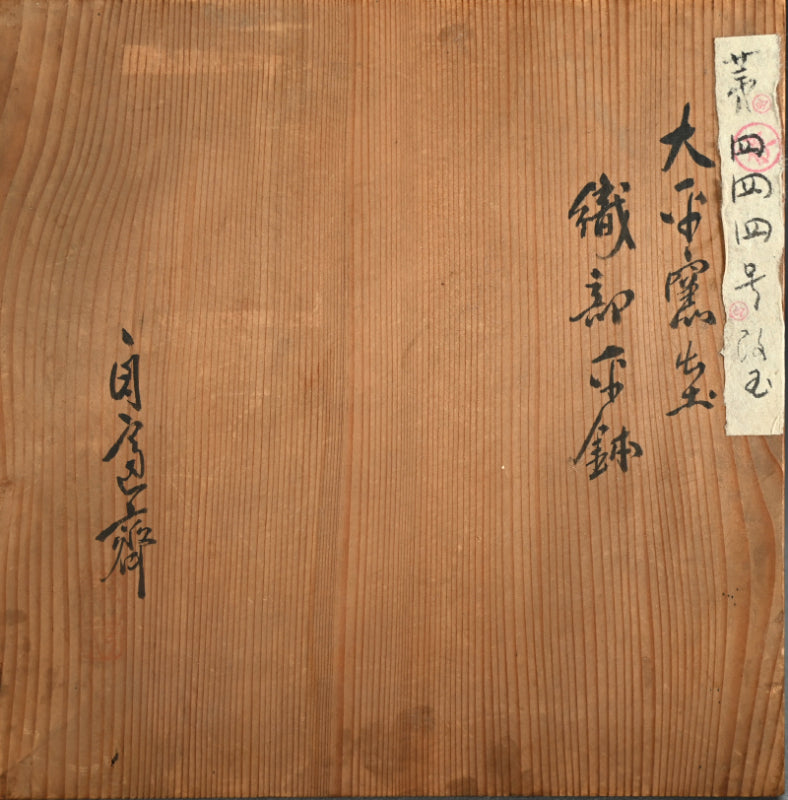 第四四四号
大平窯出土
織部平鉢
自適齋